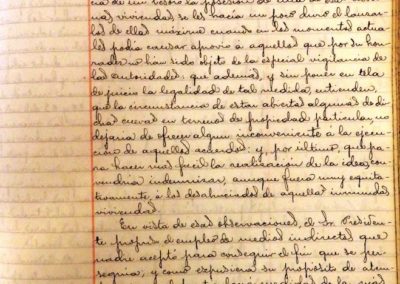 cia de un vecino la posesion de
mas viviendas, se les hacia un poco duro el lanzar-
les de ellas máxime cuando en los momentos actua-
les podia causar agravio á aquellos que por su hon-
radez no han sido objeto de la especial vigilancia de
las autoridades: que ademas, y sin poner en tela
de juicio la legalidad de tal medida, entienden,
que la circunstancia de estar abiertas algunas de di-
chas cuevas en terrenos de propiedad particular, no
dejaria de ofrecer algun inconveniente á la ejecu-
cion de aquellos acuerdos: y, por último, que pa-
ra hacer mas facil la realizacion de la idea, con-
vendria indemnizar, aunque fuera muy equita-
tivamente, á los desahuciados de aquellas inmundas
viviendas.
En vista de esas observaciones, el Sr. Presiden-
te propuso el empleo de medios indirectos que
nadie aceptó para conseguir el fin que se per-
seguia; y como expusiera su propósito de aten-